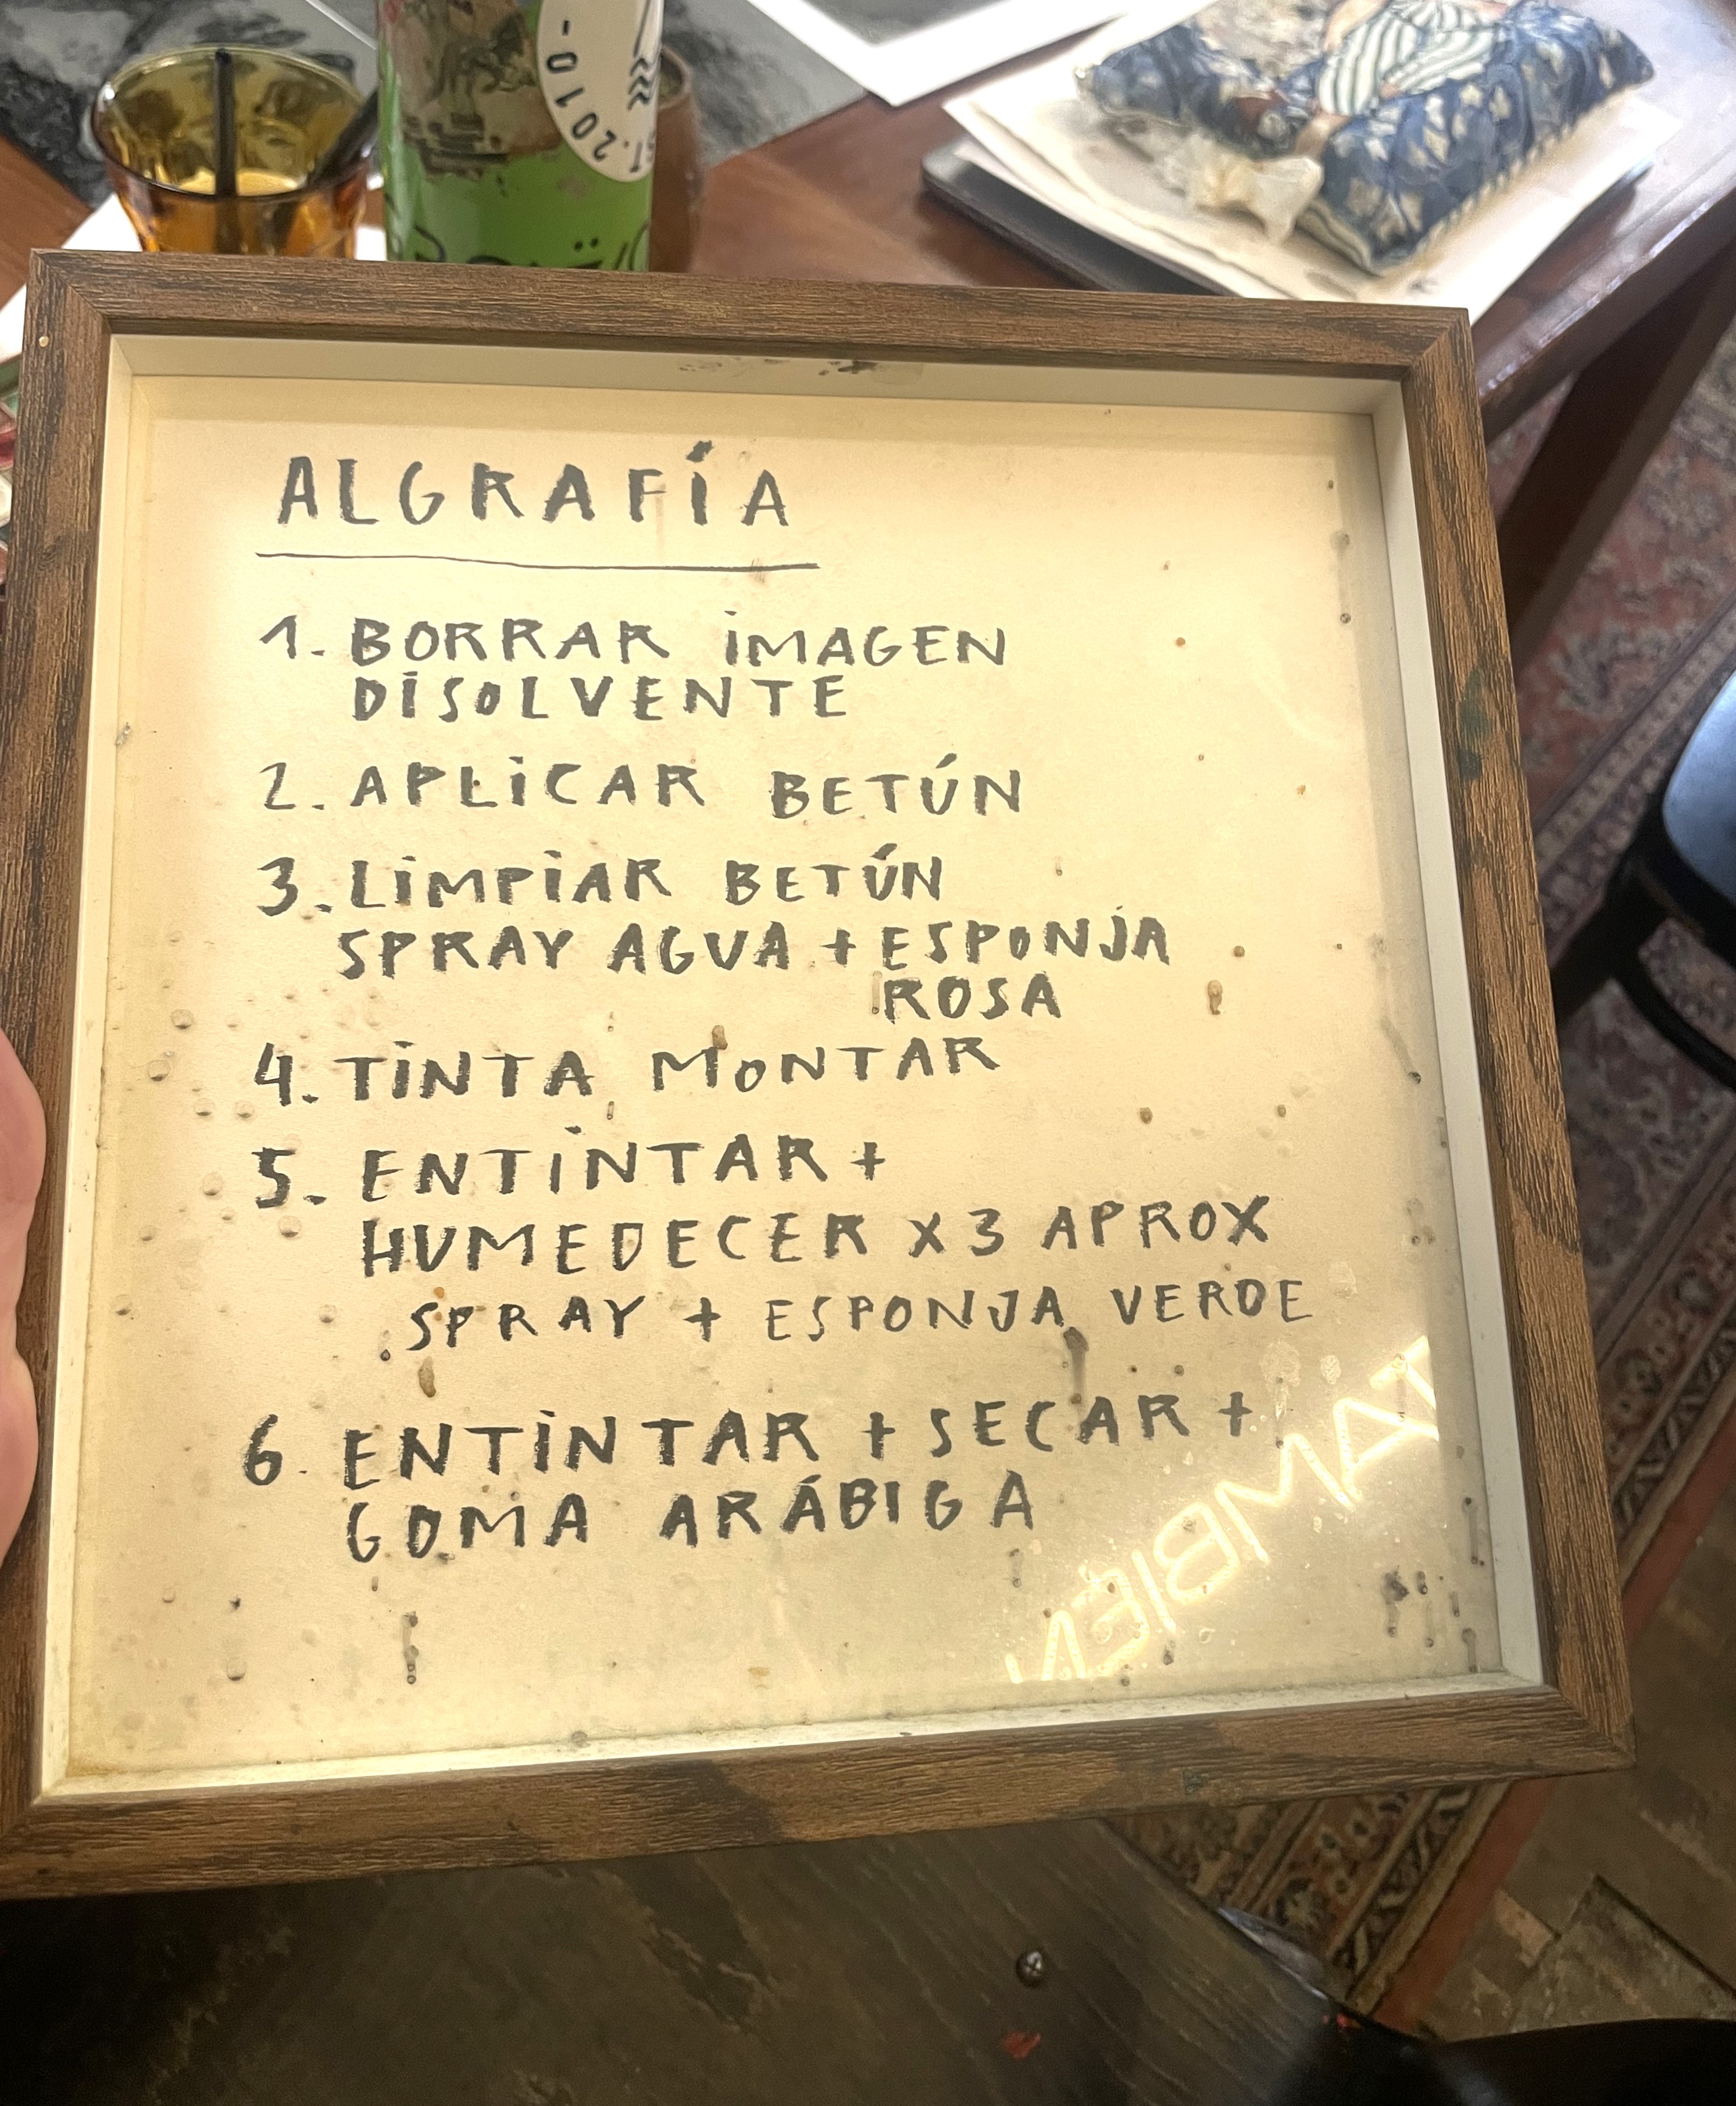 -0102 .T
ALGRAFÍA
1. BORRAR IMAGEN
DISOLVENTE
2. APLICAR BETÚN
3. LIMPIAR BETÚN
SPRAY AGUA + ESPONJA
ROSA
4. TINTA MONTAR
5. ENTINTAR +
HUMEDECER X3 APROX
SPRAY + ESPONJA VERDE
6. ENTINTAR + SECAR +
GOMA ARÁBIGA
TAMBIÉN